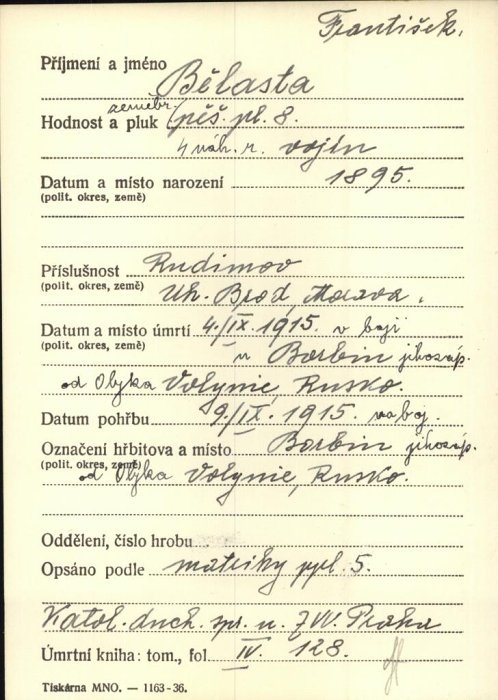 František.
Příjmení a jméno Bělasta
zeměbr.
Hodnost a pluk pěš. pl. 8.
4 náh. r. vojín
Datum a místo narození 1895.
(polit. okres, země)
Příslušnost Rudimov
(polit. okres, země) Uh. Brod, Morava.
Datum a místo úmrtí 4./IX. 1915. v boji
(polit. okres, země) u Borbin jihozáp.
od Olyka Volynie, Rusko.
Datum pohřbu 9/IX. 1915.
Označení hřbitova a místo Borbin jihozáp.
(polit. okres, země) od Olyka Volynie, Rusko.
Oddělení, číslo hrobu
Opsáno podle matriky ppl. 5.
Katol. duch. spr. u ZVV. Praha
Úmrtní kniha: tom., fol. IV. 128.
Tiskárna MNO. — 1163-36.